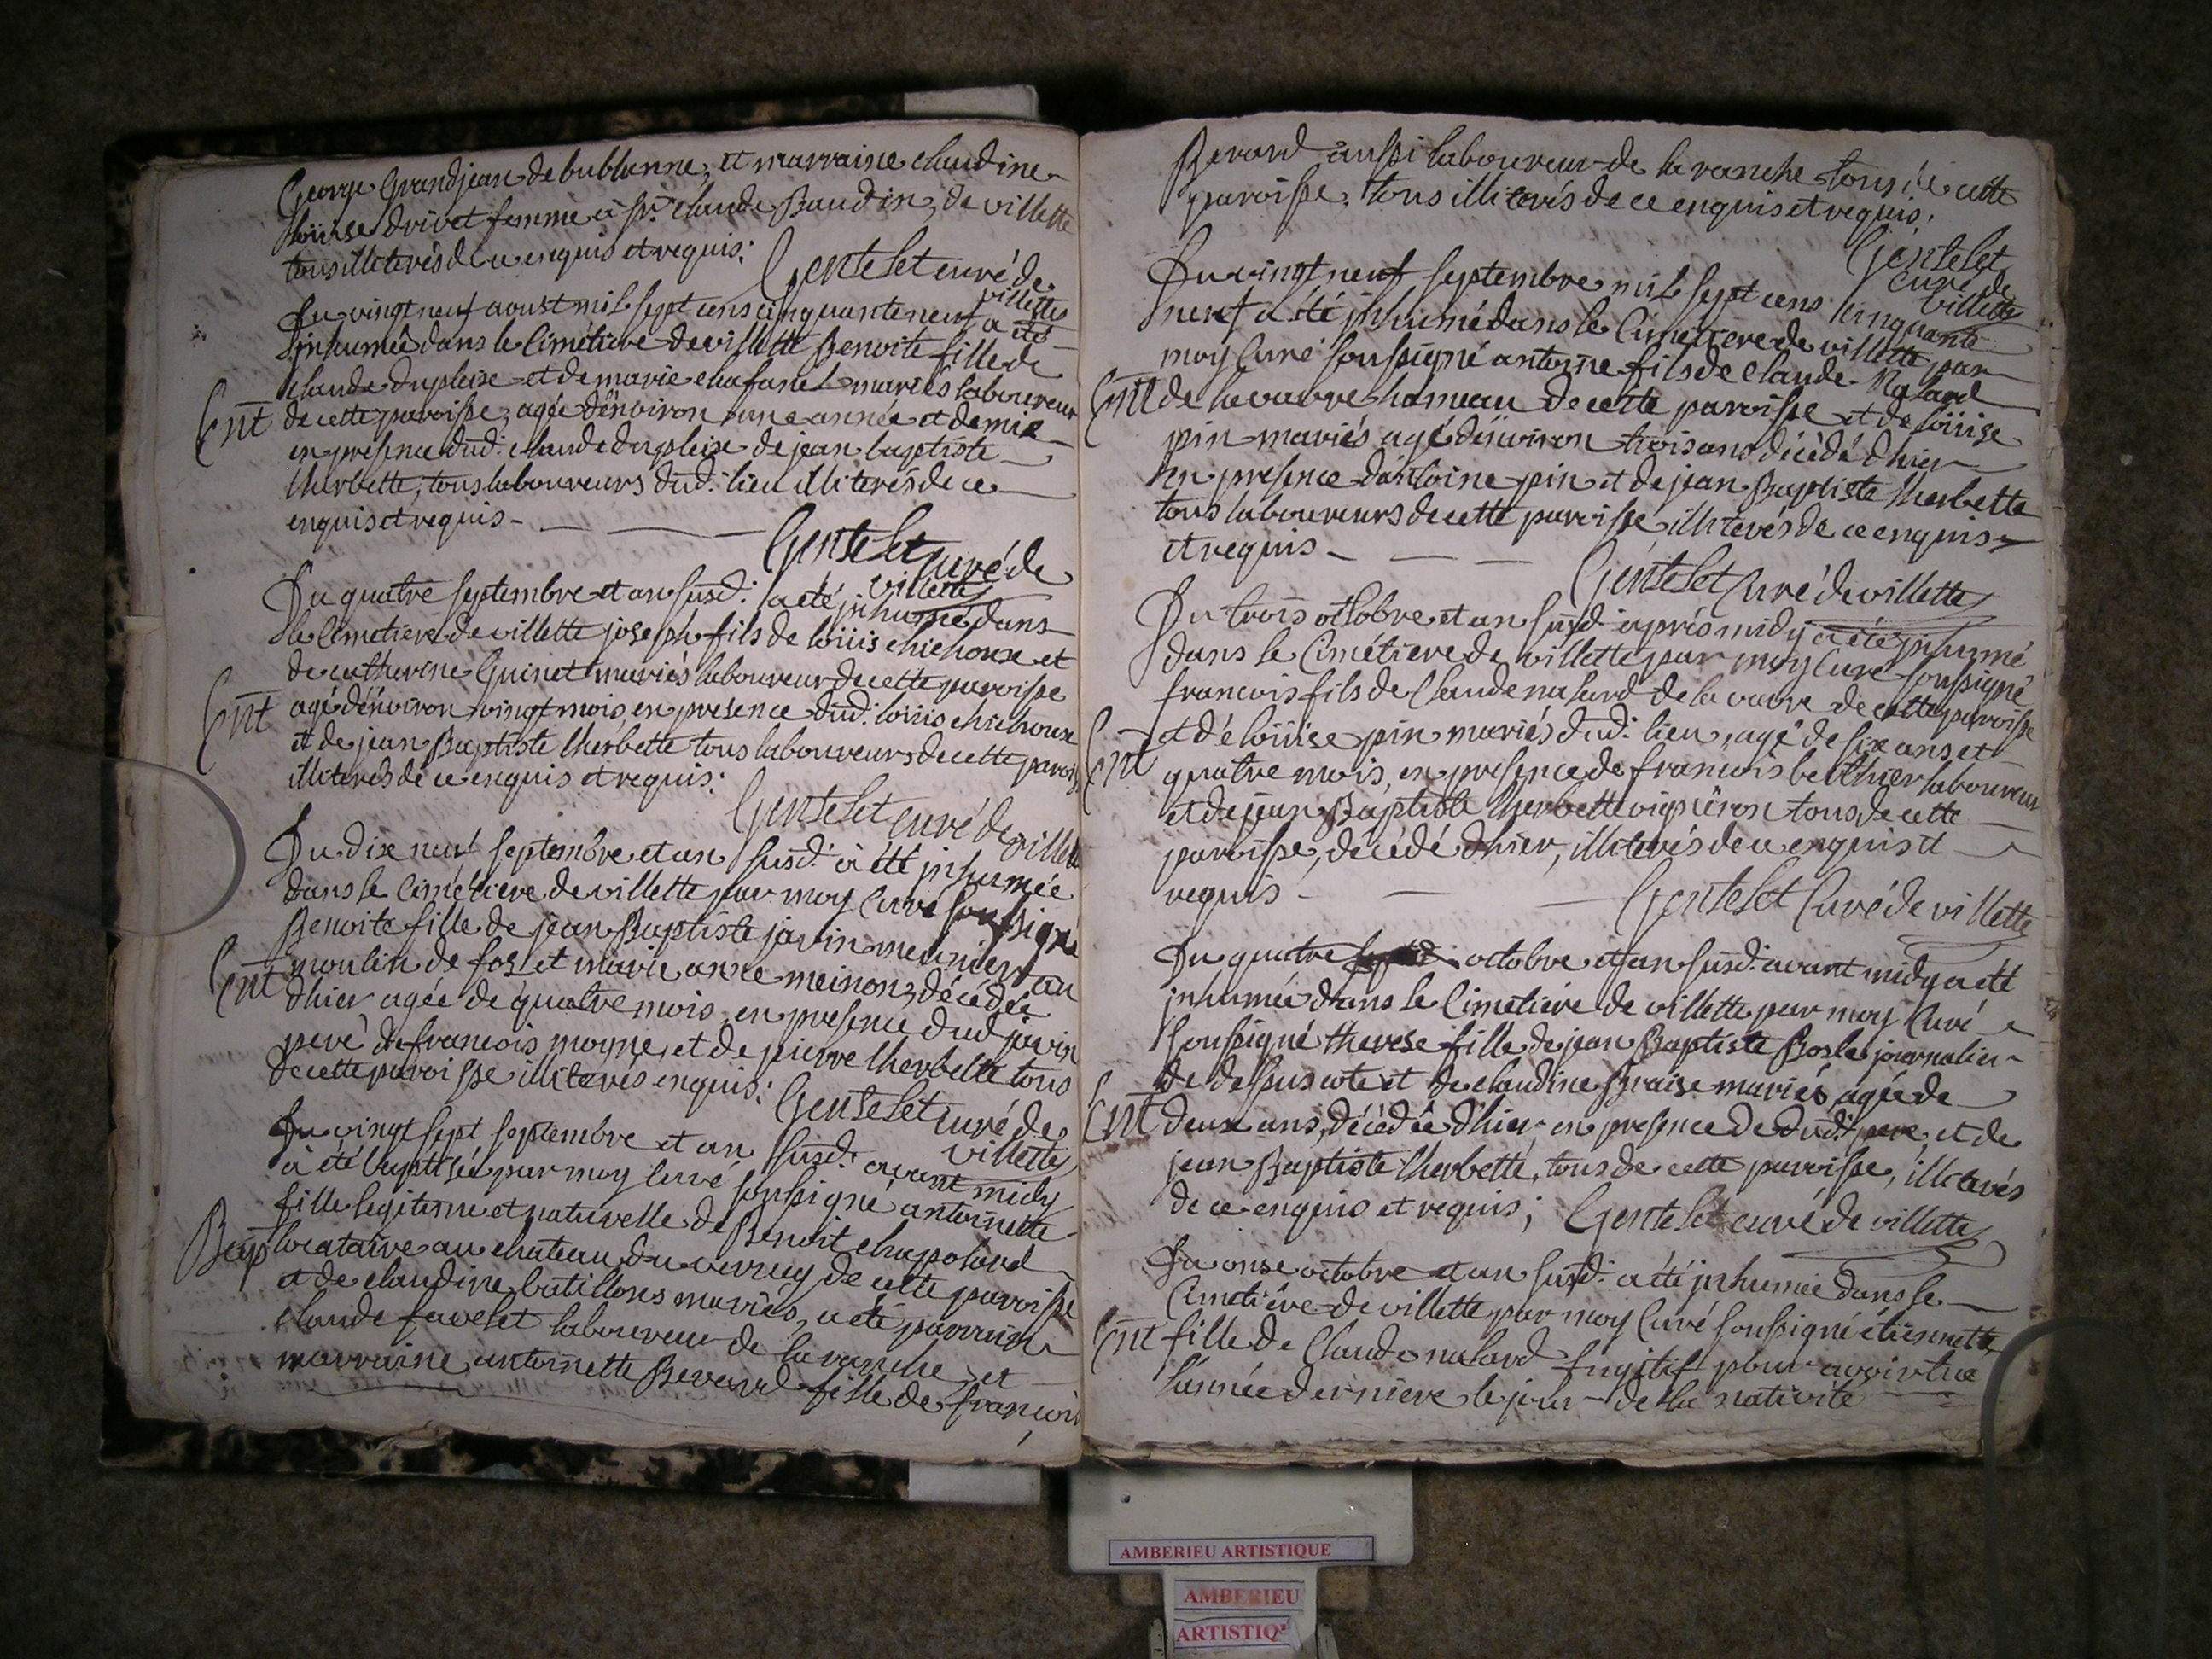 George Grandjean de bublanne, et marraine claudine
loüise drivet femme à sr. claude Baudin, de villette
tous illiterés de ce enquis et requis:
Gentelet curé de
villette
Du vingt neuf aoust mil sept cens cinquante neuf a été
inhumée dans le Cimétiere de villette Benoite fille de
claude dupleix et de marie chafanel mariés laboureur
Ent de cette paroisse, agée d'environ une année et demie
en presence dud: claude dupleix de jean baptiste
lherbette, tous laboureurs dud: lieu illiterés de ce
enquis et requis -
Gentelet curé de
villette
Du quatre septembre et an susd: a été inhumé dans
le Cimetiere de villette joseph fils de loüis chichoux et
de catherine Guinet mariés laboureur de cette paroisse
Ent agé d'environ vingt mois, en presence dud: loüis chichoux
et de jean Baptiste lherbette tous laboureurs de cette parois
illiterés de ce enquis et requis:
Gentelet curé de villette
Du dix neuf septembre et an susd: à été inhumée
dans le Cimétiere de villette par moy Curé soussigné
Benoite fille de jean Baptiste javin meunier au
Ent moulin de fos et marie anne meinon, décédée
d'hier agée de quatre mois, en presence dud javin
pere de francois moyne, et de pierre lherbette tous
de cette paroisse illiterés enquis:
Gentelet curé de
villette
Du vingt sept septembre et an susd: avant midy
à été baptisée par moy Curé soussigné antoinette
fille legitime et naturelle de Benoit chapoland
Bap locataire au chateau du verrey de cette paroisse
et de claudine batillons mariés, a été parrain
claude favelet laboureur de la ranche et
marraine antoinette Berard fille de françois
Berard aussi laboureur de la ranche tous de cette
paroisse, tous illiterés de ce enquis et requis.
Gentelet
Curé de
villette
Du vingt neuf septembre mil sept cens cinquante
neuf a été inhumé dans le Cimetiere de villette par
moy Curé soussigné antoine fils de claude Nalard
Ent de la vavre hameau de cette paroisse et de loüise
pin mariés agé d'environ trois ans décédé d'hier
en presence d'antoine pin et de jean Baptiste lherbette
tous laboureurs de cette paroisse illiterés de ce enquis
et requis -
Gentelet Curé de villette
Du trois octobre et an susd: aprés midy a été inhumé
dans le Cimétiere de villette par moy Curé soussigné
francois fils de Claude nalard de la vavre de cette paroisse
et de loüise pin mariés dud: lieu, agé de six ans et
Ent quatre mois, en presence de francois belthier laboureur
et de jean Baptiste lherbette vigneron tous de cette
paroisse, décédé d'hier, illiterés de ce enquis et
requis -
Gentelet Curé de villette
Du quatre octobre et an susd: avant midy a été
inhumée dans le Cimetiére de villette par moy Curé
soussigné therese fille de jean Baptiste Bosle journalier
de dessus cote et de claudine Braise mariés, agée de
Ent deux ans, décédée d'hier en presence de dud: pere, et de
jean Baptiste lherbette, tous de cette paroisse, illiterés
de ce enquis et requis;
Gentelet curé de villette
Du onse octobre et an susd: a été inhumée dans le
Cimetiére de villette par moy Curé soussigné étiennette
Ent fille de Claude nalard fugitif pour avoir tué
l'année derniere le jour de la nativité
AMBERIEU ARTISTIQUE
AMBERIEU
ARTISTIQ